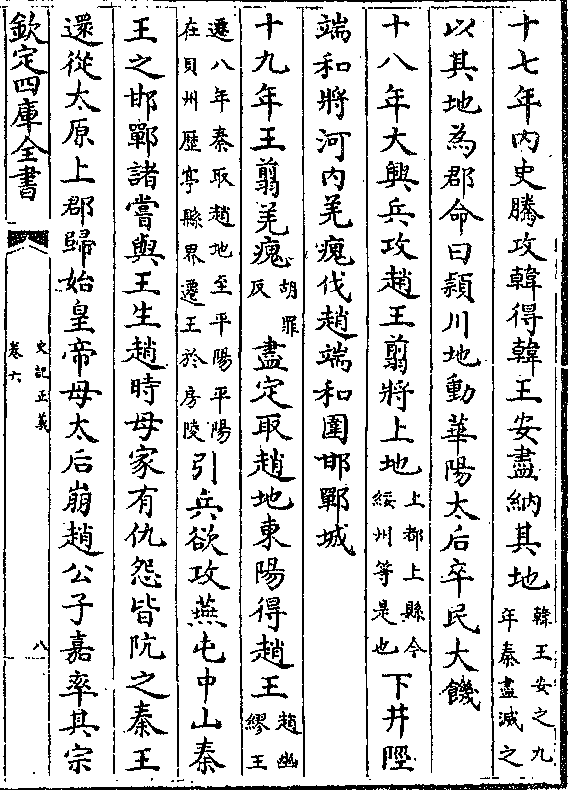 十七年内史騰攻韓得韓王安盡納其地韓王安之九年秦盡滅之
以其地為郡命曰潁川地動華陽太后卒民大饑
十八年大興兵攻趙王翦將上地上都上縣今綏州等是也下井陘
端和將河内羌瘣伐趙端和圍邯鄲城
十九年王翦羌瘣胡罪反盡定取趙地東陽得趙王趙幽繆王
遷八年秦取趙地至平陽平陽在貝州歷亭縣界遷王於房陵引兵欲攻燕屯中山秦
王之邯鄲諸嘗與王生趙時母家有仇怨皆阬之秦王
還從太原上郡歸始皇帝母太后崩趙公子嘉率其宗
欽定四庫全書
史記正義
卷六
八